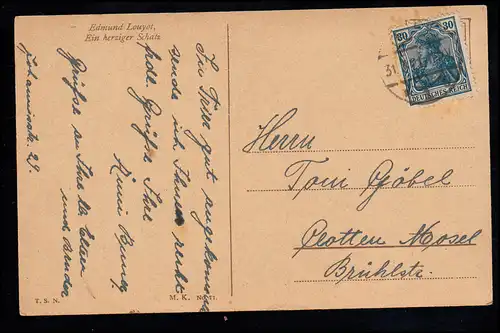 Edmund Louyot,
Ein herziger Schatz
In Trier gut angekommen
sende ich Ihnen recht
Grüße Ihre
Grüße an Ihre lb. Eltern
und Bruder
Johannisstr. 28.
T. S. N.
M. K.
30 30
DEUTSCHES REICH
31
Herrn
Toni Göbel
Clotten Mosel
Brühlstr.